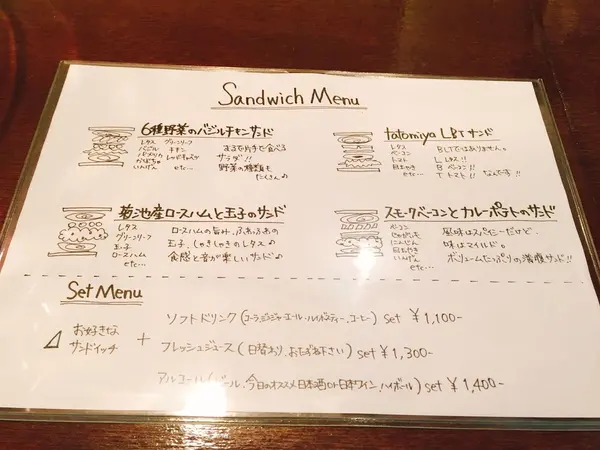 Sandwich Menu
6種野菜のバジルチキンサンド
レタス
グリーンリーフ
バジル チキン
パプリカ レッドキャベツ
かぼちゃ
いんげん etc…
まるで片手で食べる
サラダ!!
野菜の種類も
たくさん♪
tatomiya LBTサンド
レタス
ベーコン
トマト
目玉やき
いんげん
etc…
BLTではありません。
L レタス!!
B ベーコン!!
T トマト!! なんです!!
菊池産ロースハムと玉子のサンド
レタス
グリーンリーフ
玉子
ロースハム
etc…
ロースハムの旨み、ふわふわの
玉子、しゃきしゃきのレタス♪
食感と音が楽しいサンド♪
スモークベーコンとカレーポテトのサンド
ベーコン
じゃがいも
にんじん
目玉やき
いんげん
etc…
風味はスパイシーだけど、
味はマイルド。
ボリュームたっぷりの満腹サンド!!
Set Menu
お好きな
サンドイッチ
+
ソフトドリンク(コーラ、ジンジャーエール・ハイボティー、コーヒー) set ¥1,100-
フレッシュジュース(日替わり、おたずね下さい) set ¥1,300-
アルコール(ビール、今日のオススメ日本酒or日本ワイン、ハイボール) set ¥1,400-